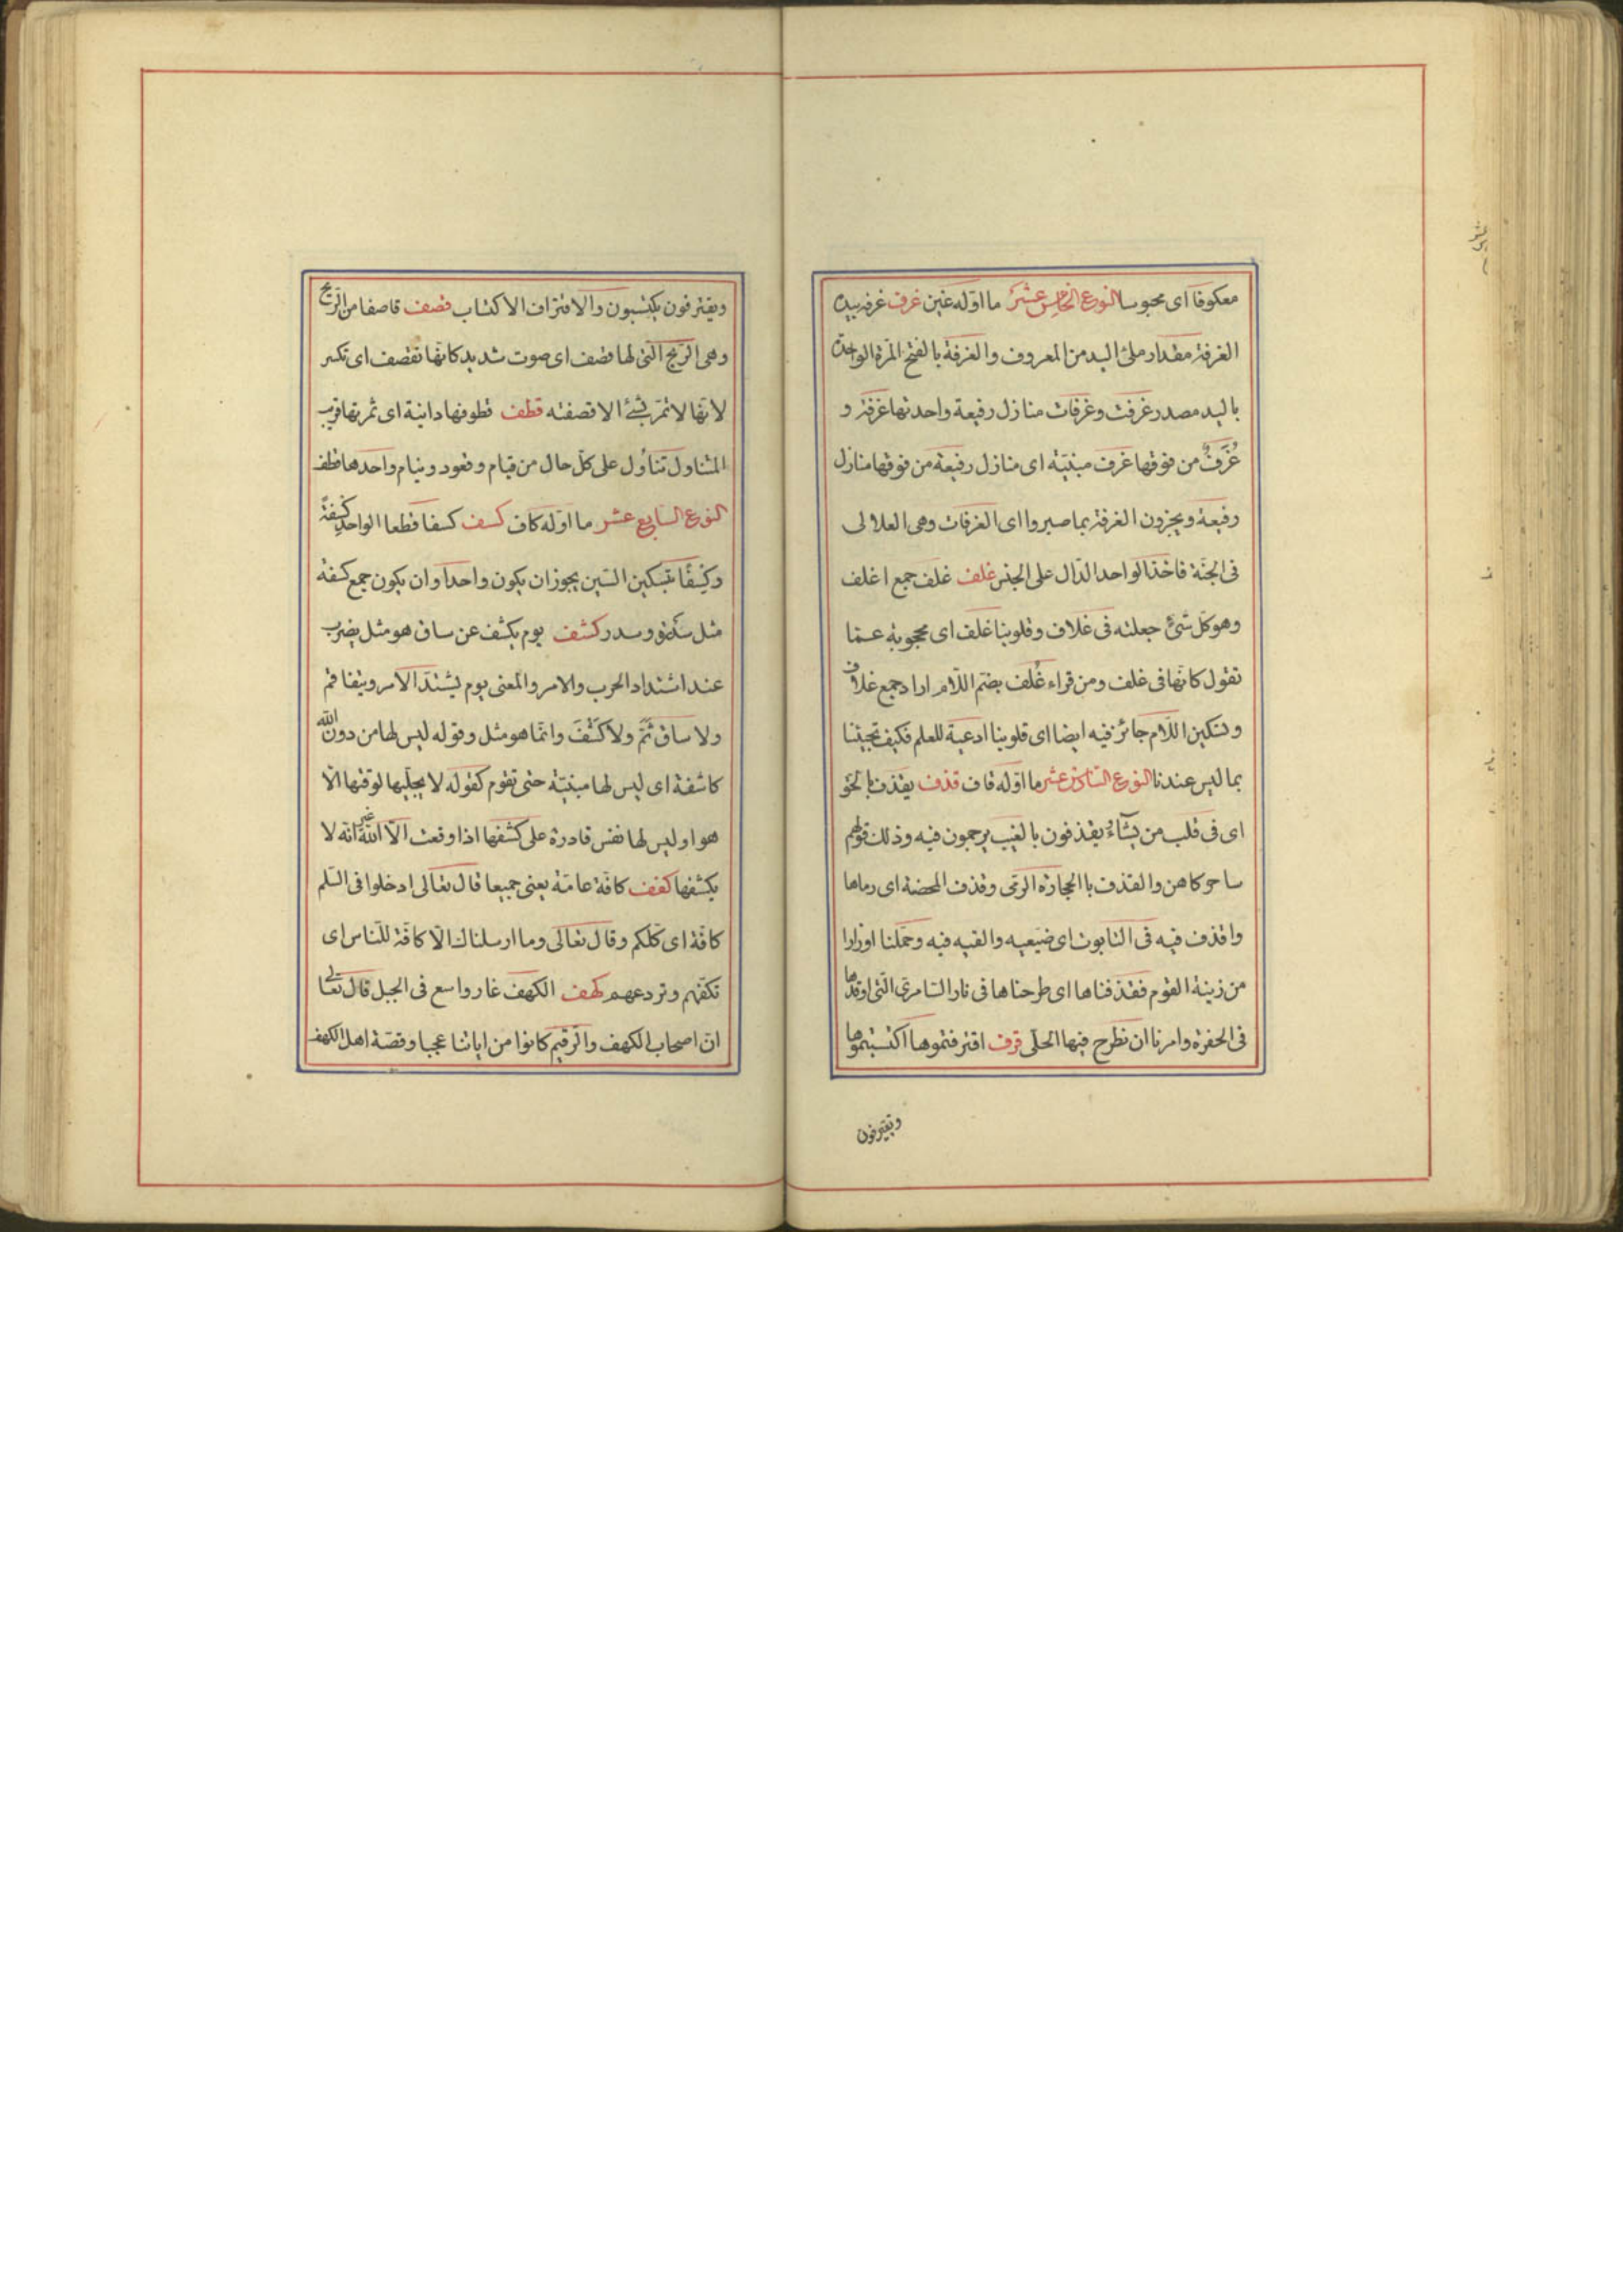 معكوفا اى محبوسا النوع الخامس عشر ما اوّله غين غرف غرفه بيده
الغرفة مقدار ملئ اليد من المعروف والغرفة بالفتح المرّة الواحدة
باليد مصدر غرفت وغرفات منازل رفيعة واحدتها غرفة و
غُرَفٌ من فوقها غرف مبنيّة اى منازل رفيعة من فوقها منازل
رفيعة ويجزون الغرفة بما صبروا اى الغرفات وهى العلالى
فى الجنّة فاخذ الواحد الدّال على الجنس غلف غلف جمع اغلف
وهو كلّ شئ جعلته فى غلاف وقلوبنا غلف اى محجوبة عمّا
تقول كانّها فى غلف ومن قراء غُلُف بضم اللّام اراد جمع غلاف
وتسكين اللّام جائز فيه ايضا اى قلوبنا اوعية للعلم فكيف تجيئنا
بما ليس عندنا النوع السّادس عشر ما اوّله قاف قذف يقذف بالحق
اى فى قلب من يشاء يقذفون بالغيب يرجمون فيه وذلك قولهم
ساحر كاهن والقذف باالحجارة الرمى وقذف المحصنة اى رماها
واقذف فيه فى التابوت اى ضيعيه والقيه فيه وحمّلنا اوزارا
من زينة القوم فقذفناها اى طرحناها فى نار السّامرىّ الّتى اوقدها
فى الحفرة وامرنا ان نطرح فيها الحلّى قرف اقترفتموها اكتسبتموها
ويقترفون
ويقترفون يكتسبون والاقتراف الاكتساب قصف قاصفا من الرّيح
وهى الرّيح الّتى لها قصف اى صوت شديد كانّها تقصف اى تكسر
لانّها لا تمرّ بشئ الا قصفته قطف قطوفها دانية اى ثمرتها قريب
المتناول تناول على كلّ حال من قيام وقعود ونيام واحدها قطف
النوع السّابع عشر ما اوّله كاف كسف كسفا قطعا الواحد كِسْفةً
وكِسْفًا بتسكين السّين يجوز ان يكون واحدا وان يكون جمع كسفة
مثل سدرة وسدر كشف يوم يكشف عن ساق هو مثل يضرب
عند اشتداد الحرب والامر والمعنى يوم يشتدّ الامر ويتفاقم
ولا ساق ثَمَّ ولا كَشْفَ وانّما هو مثل وقوله ليس لها من دون اللّه
كاشفة اى ليس لها مبنيّة حتى تقوم كقوله لا يجلّيها لوقتها الّا
هو او ليس لها نفس قادرة على كشفها اذا وقعت الّا اللّه غير انّه لا
يكشفها كفف كافّة عامّة يعنى جميعا قال تعالى ادخلوا فى السّلم
كافّة اى كلّكم وقال تعالى وما ارسلناك الّا كافّة للنّاس اى
تكفّهم وتردعهم كهف الكهف غار واسع فى الجبل قال تعالى
انّ اصحاب الكهف والرّقيم كانوا من اياتنا عجبا وقصّة اهل الكهف